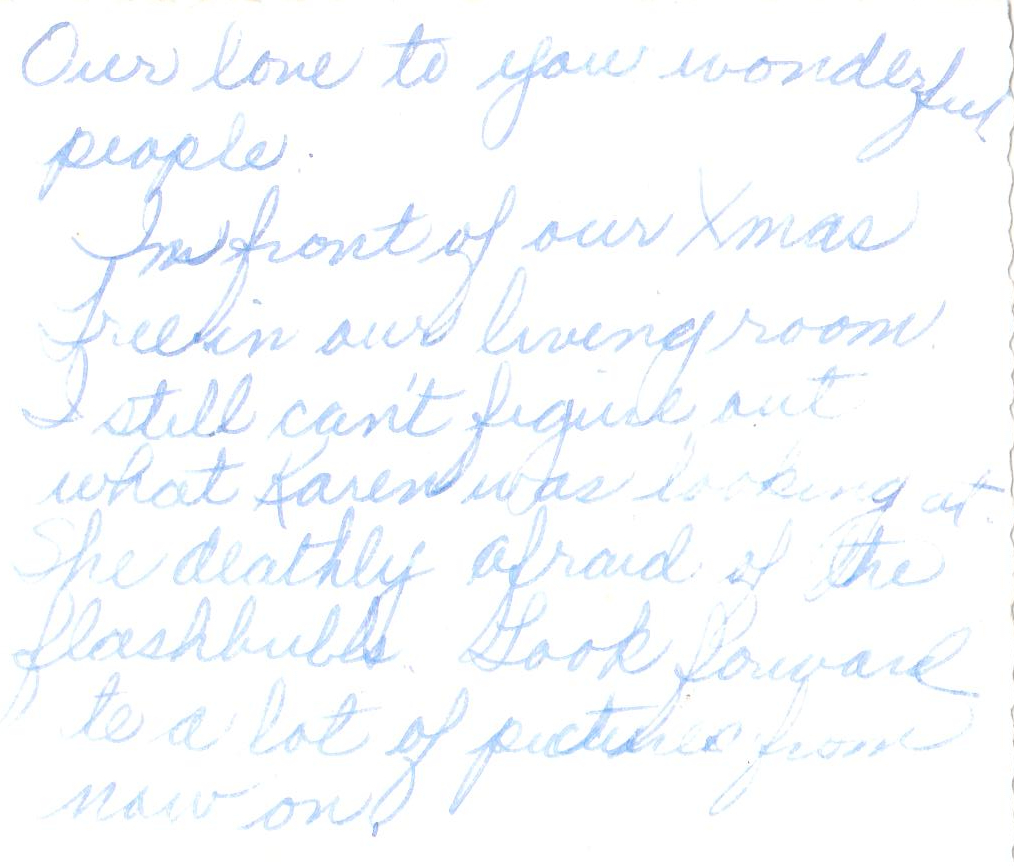 Our love to you wonderful
people.
In front of our Xmas
Tree in our living room.
I still can't figure out
what Karen was looking at.
She deathly afraid of the
flashbulbs Look forward
to a lot of pictures from
now on.